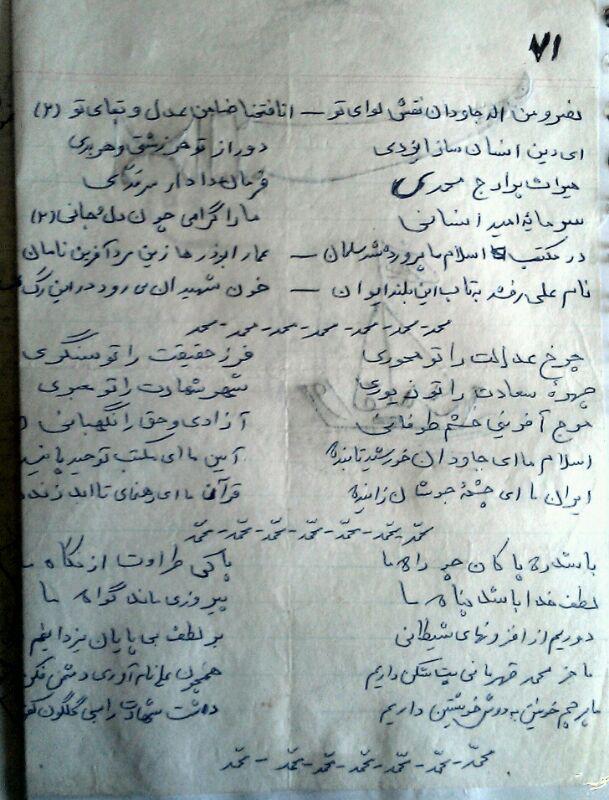 ۷۱
نصر و من اله جاودان نقش لوای تو — انا فتحنا ضامن عدل و بقای تو (۲)
ای دین انسان ساز ایزدی دور از تو هر زشتی و هر بدی
میراث پر ارج محمدی فرمان دادار سرمدی
سرمایهٔ امید انسانی ما را گرامی چون دل و جانی (۲)
در مکتب اسلام ما پرورده شد سلمان — عمار ابوذرها زین مرد آفرین نامان
نام علی رفته به تاب این بلند ایوان — خون شهیدان می رود در این رگ
محمد-محمد-محمد-محمد-محمد-محمد-محمد
چرخ عدالت را تو محوری فرز حقیقت را تو سنگری
چهرهٔ سعادت را تو زیوری شهر شهادت را تو معبری
موج آفرینی خشم طوفانی آزادی و حق را نگهبانی
اسلام ما ای جاودان خورشید تابنده آیین ما ای مکتب توحید
ایران ما ای چشمهٔ جوشان زاینده قرآن ما ای رهنمای تا ابد زنده
محمد-محمد-محمد-محمد-محمد-محمد-محمد
باشد ره پاکان چو راه ما پاکی طراوت از نگاه
لطف خدا باشد پناه ما پیروزی ماند گواه ما
دوریم از افزونهای شیطانی بر لطف بی پایان یزدانیم
ما جز محمد قهرمانی بت شکن داریم همچون علی نام آوری دشمن فکن
ما پرچم خونین به دوش خویشتن داریم دشت شهادت را بسی گلگون
محمد-محمد-محمد-محمد-محمد-محمد-محمد